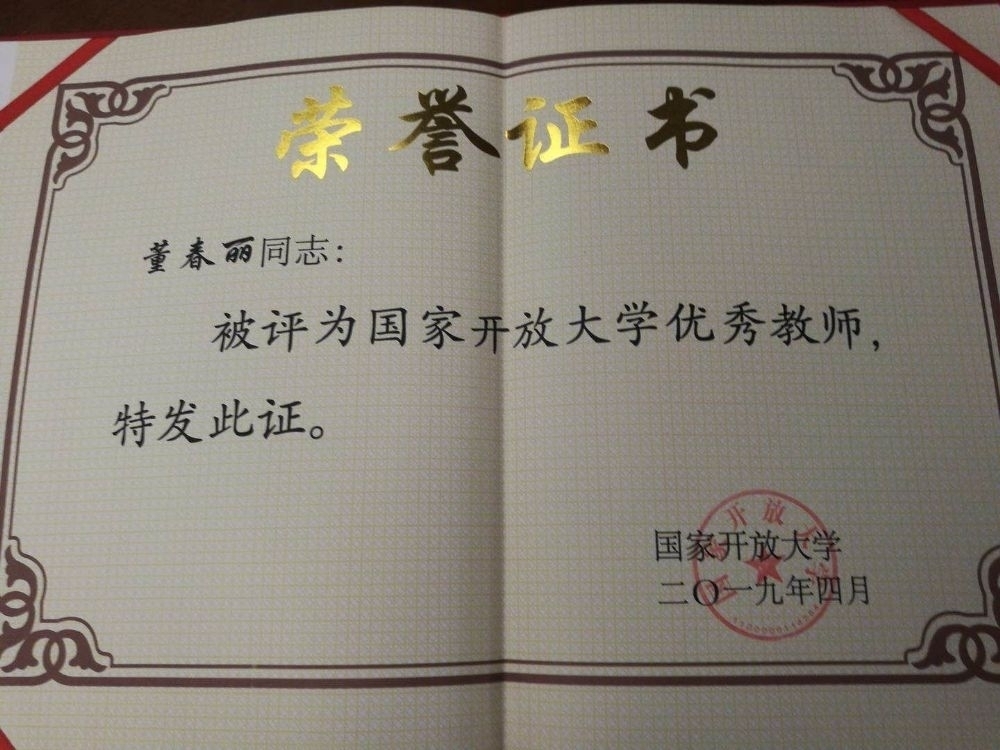 荣誉证书
董春丽同志：
被评为国家开放大学优秀教师，
特发此证。
国家开放大学
二〇一九年四月